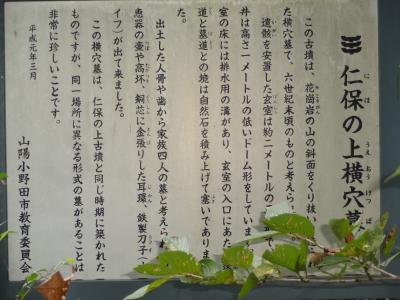 仁保の上横穴墓
にほ うえ おうけつぼ
この古墳は、花崗岩の山の斜面をくり抜い
た横穴墓で、六世紀末頃のものと考えら
遺骸を安置した玄室は約二メートルの
井は高さ一メートルの低いドーム形をしていま
室の床には排水用の溝があり、玄室の入口にあた
道と墓道との境は自然石を積み上げて塞いであります
た。
出土した人骨や歯から家族四人の墓と考えられ
恵器の壷や高坏、銅芯に金張りした耳環、鉄製刀子
イフ)が出て来ました。
この横穴墓は、仁保の上古墳と同じ時期に築かれた
ものですが、同一場所に異なる形式の墓があることは
非常に珍しいことです。
平成元年三月
山陽小野田市教育委員会